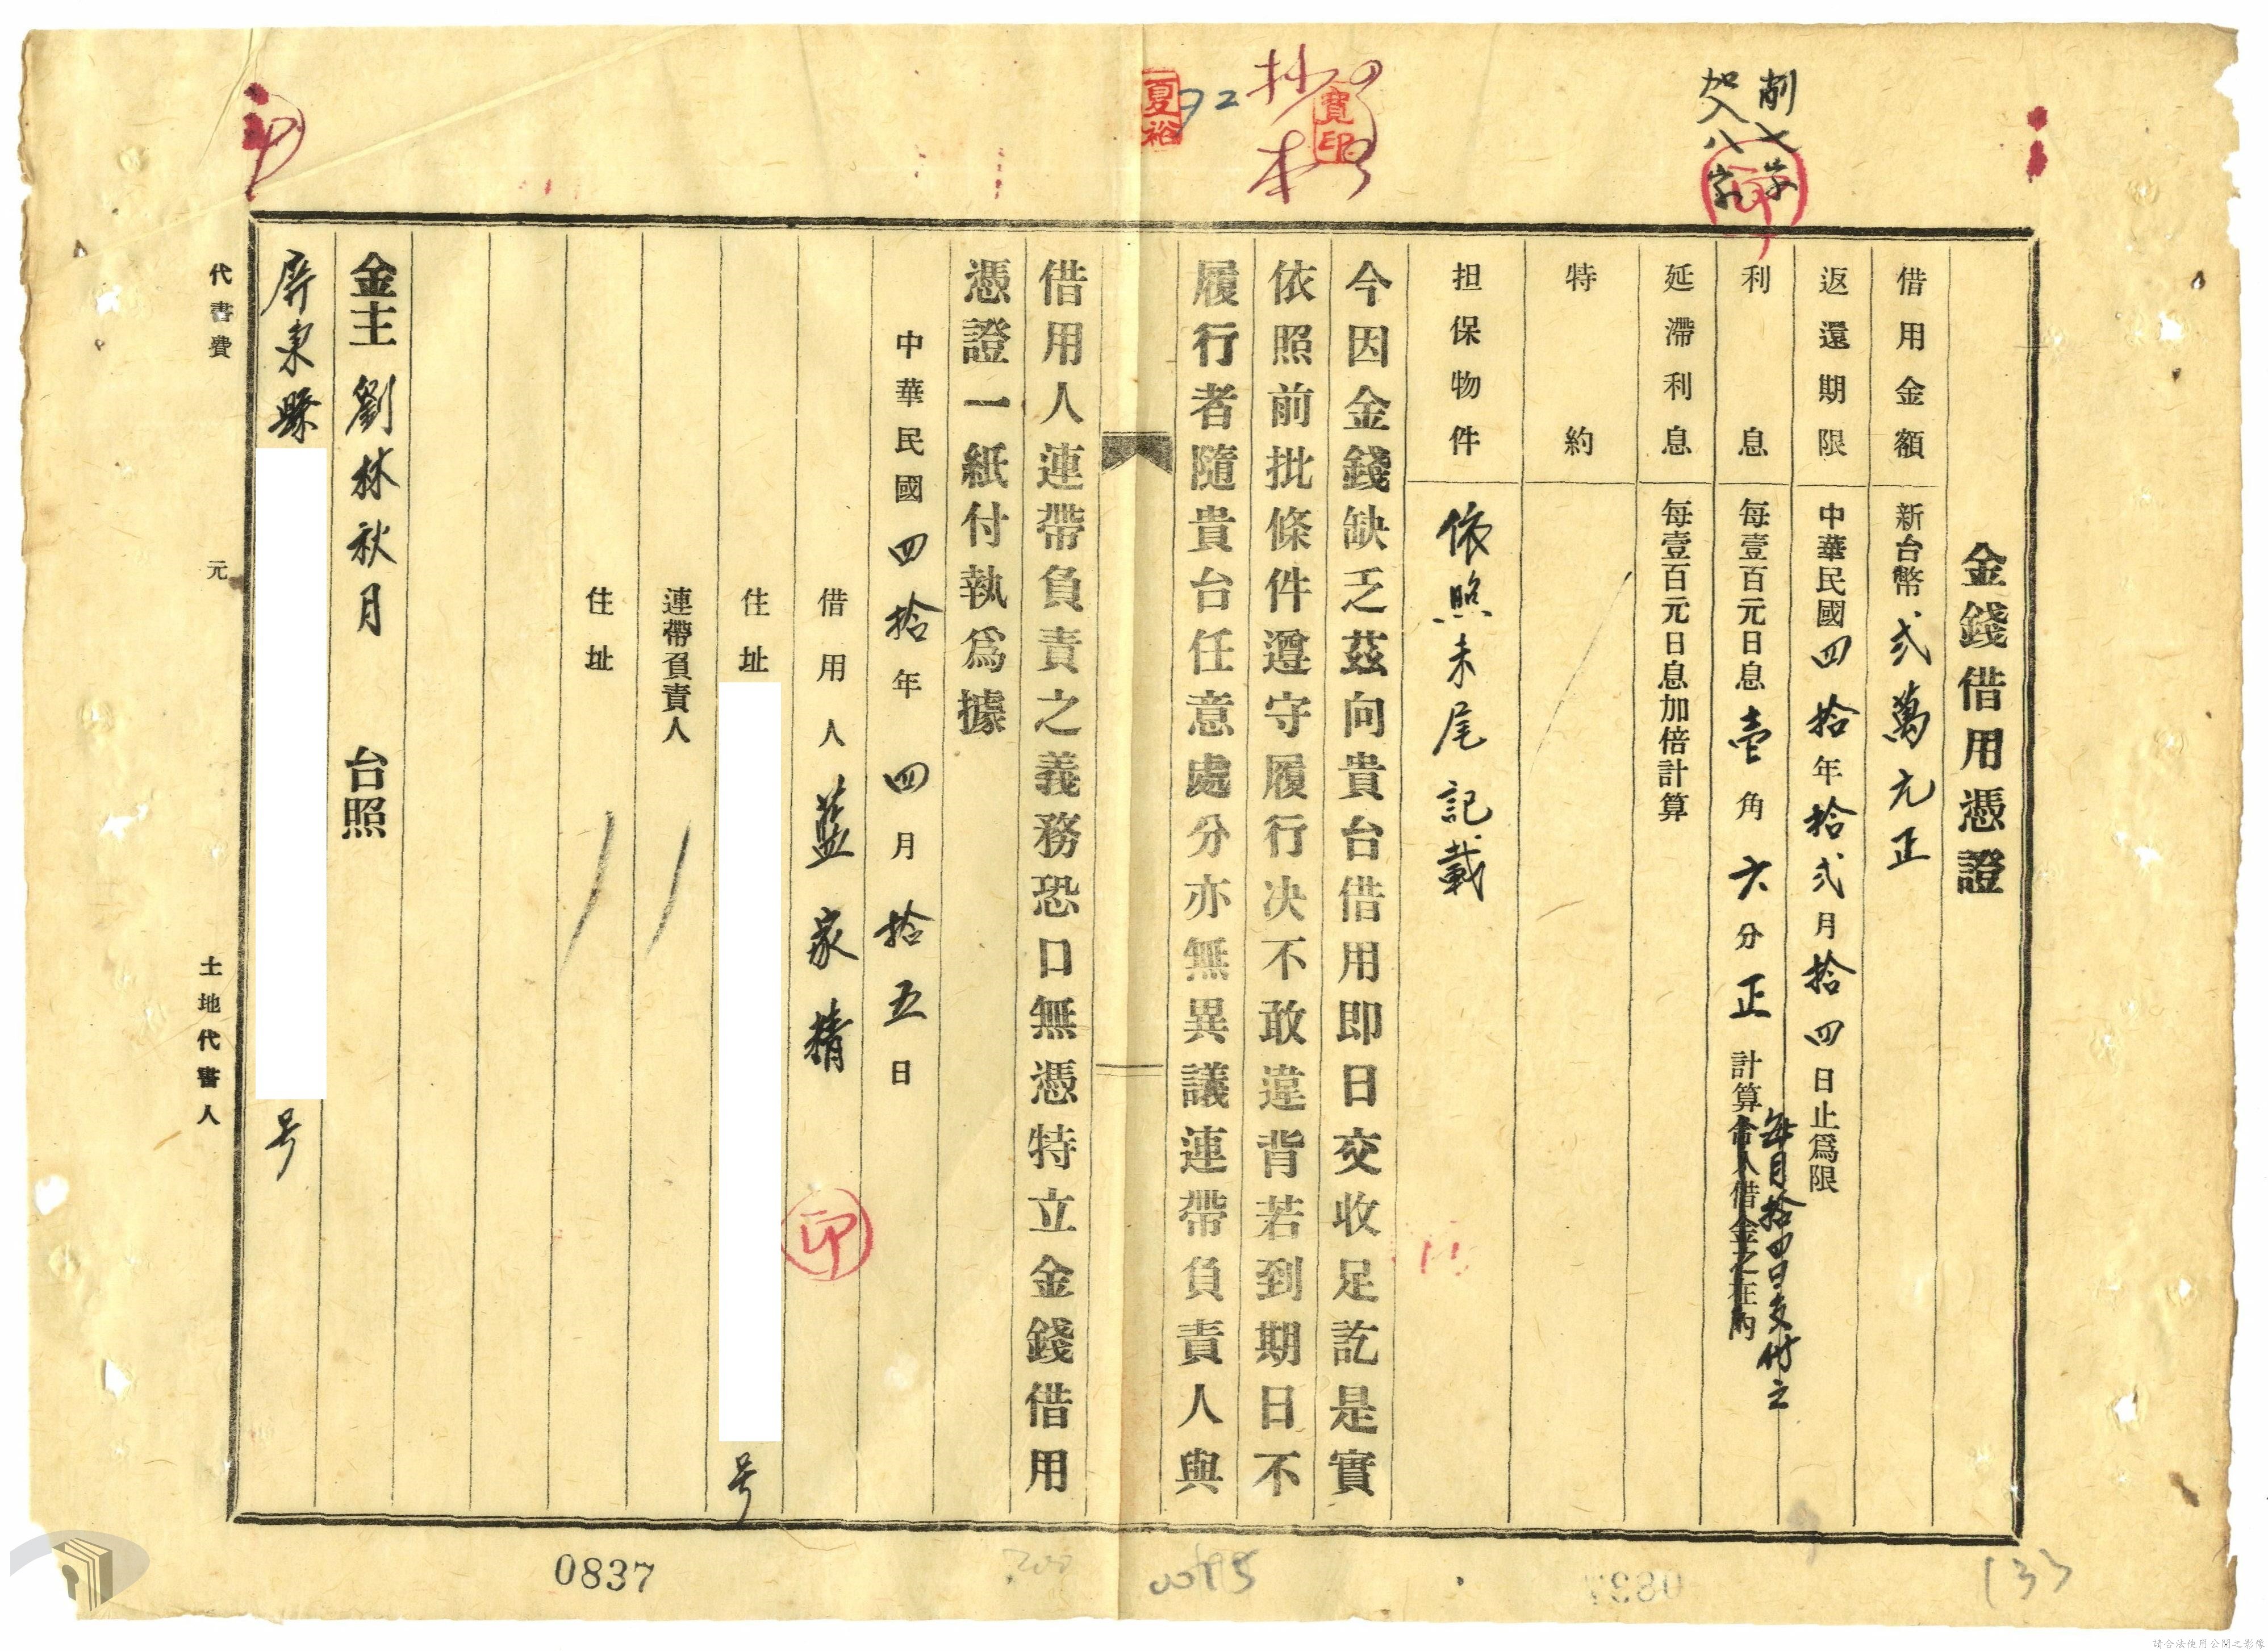 削七字
加入八字
印
抄本
夏裕
寬印
92
金錢借用憑證
借用金額 新台幣弍萬元正
返還期限 中華民國四拾年拾弍月拾四日止爲限
利息 每壹百元日息壹角六分正計算
每月拾四日支付之
延滯利息 每壹百元日息加倍計算
特約
担保物件 依照末尾記載
今因金錢缺乏茲向貴台借用即日交收足訖是實
依照前批條件遵守履行决不敢違背若到期日不
履行者隨貴台任意處分亦無異議連帶負責人與
借用人連帶負責之義務恐口無憑特立金錢借用
憑證一紙付執爲據
中華民國四拾年四月拾五日
借用人 藍家精 印
住址 号
連帶負責人
住址
金主 劉林秋月 台照
屏東縣 号
代書費 元 土地代書人
0837
133
請合法使用公開之影像